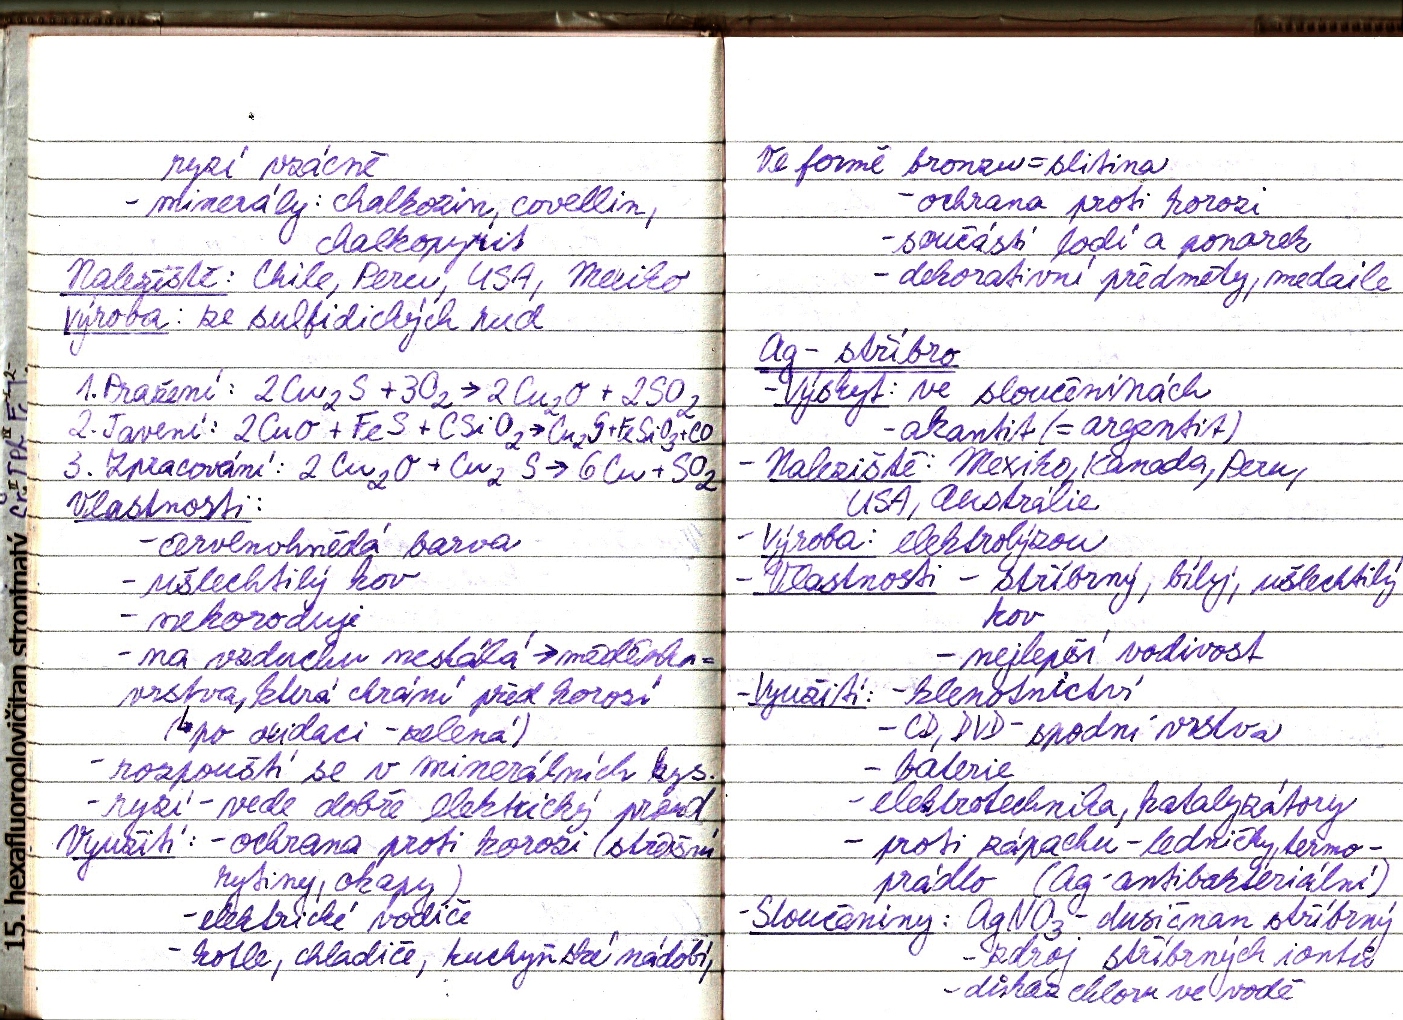 ryzí vzácně
- minerály: chalkozin, covellin,
chalkopyrit
Naleziště: Chile, Peru, USA, Mexiko
Výroba: ze sulfidických rud
1. Pražení: 2Cu₂S + 3O₂ → 2Cu₂O + 2SO₂
2. Tavení: 2CuO + FeS + CSiO₂ → Cu₂S + FeSiO₃ + CO
3. Zpracování: 2Cu₂O + Cu₂S → 6Cu + SO₂
Vlastnosti:
- červenohnědá barva
- ušlechtilý kov
- nekoroduje
- na vzduchu nestálá → měděnka =
vrstva, která chrání před korozí
(↳ po oxidaci - zelená)
- rozpouští se v minerálních kys.
- ryzí - vede dobře elektrický proud
Využití: - ochrana proti korozi (střešní
krytiny, okapy)
- elektrické vodiče
- kotle, chladiče, kuchyňské nádobí,
Ve formě bronzu = slitina
- ochrana proti korozi
- součástí lodí a ponorek
- dekorativní předměty, medaile
Ag - stříbro
- Výskyt: ve sloučeninách
- akantit (= argentit)
- Naleziště: Mexiko, Kanada, Peru,
USA, Austrálie
- Výroba: elektrolýzou
- Vlastnosti - stříbrný, bílý, ušlechtilý
kov
- nejlepší vodivost
- Využití: - klenotnictví
- CD, DVD - spodní vrstva
- baterie
- elektrotechnika, katalyzátory
- proti zápachu - ledničky, termo-
prádlo (Ag - antibakteriální)
- Sloučeniny: AgNO₃ - dusičnan stříbrný
- zdroj stříbrných iontů
- důkaz chloru ve vodě
15. hexafluoroolovičitan strontnatý